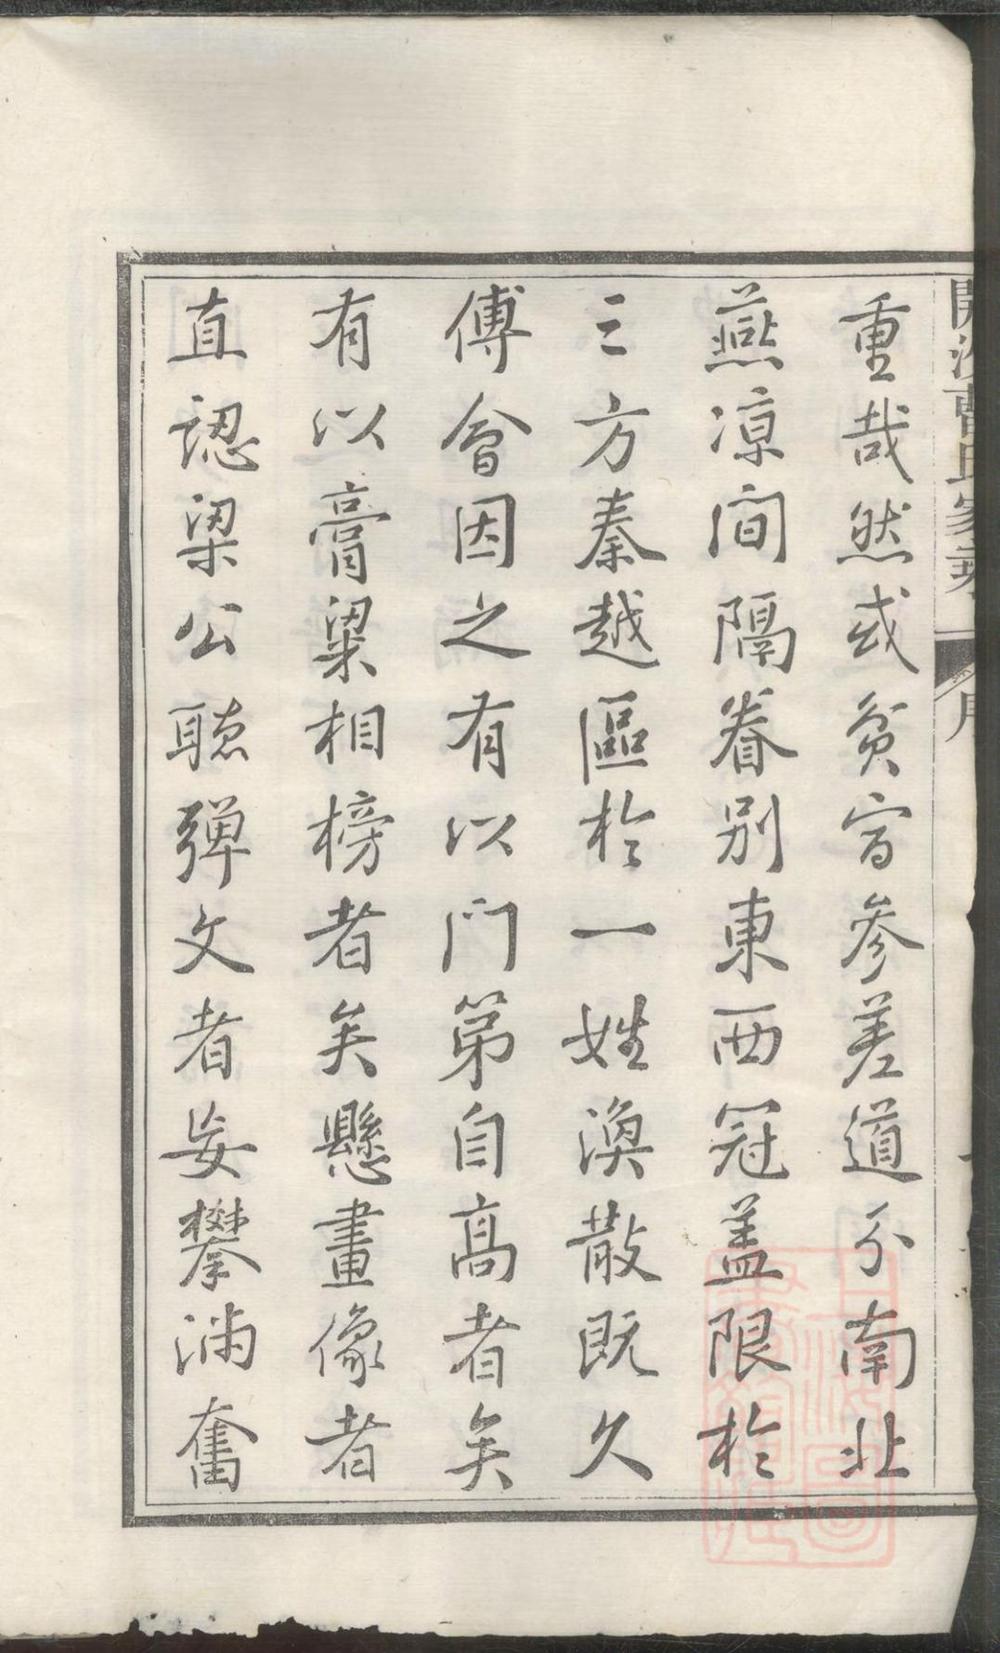 重哉然或貧富參差道分南北
燕涼間隔眷別東西冠蓋限於
三方秦越區於一姓渙散既久
傅會因之有以門第自高者矣
有以膏粱相榜者矣懸畫像者
直認梁公聽彈文者妄攀滿奮